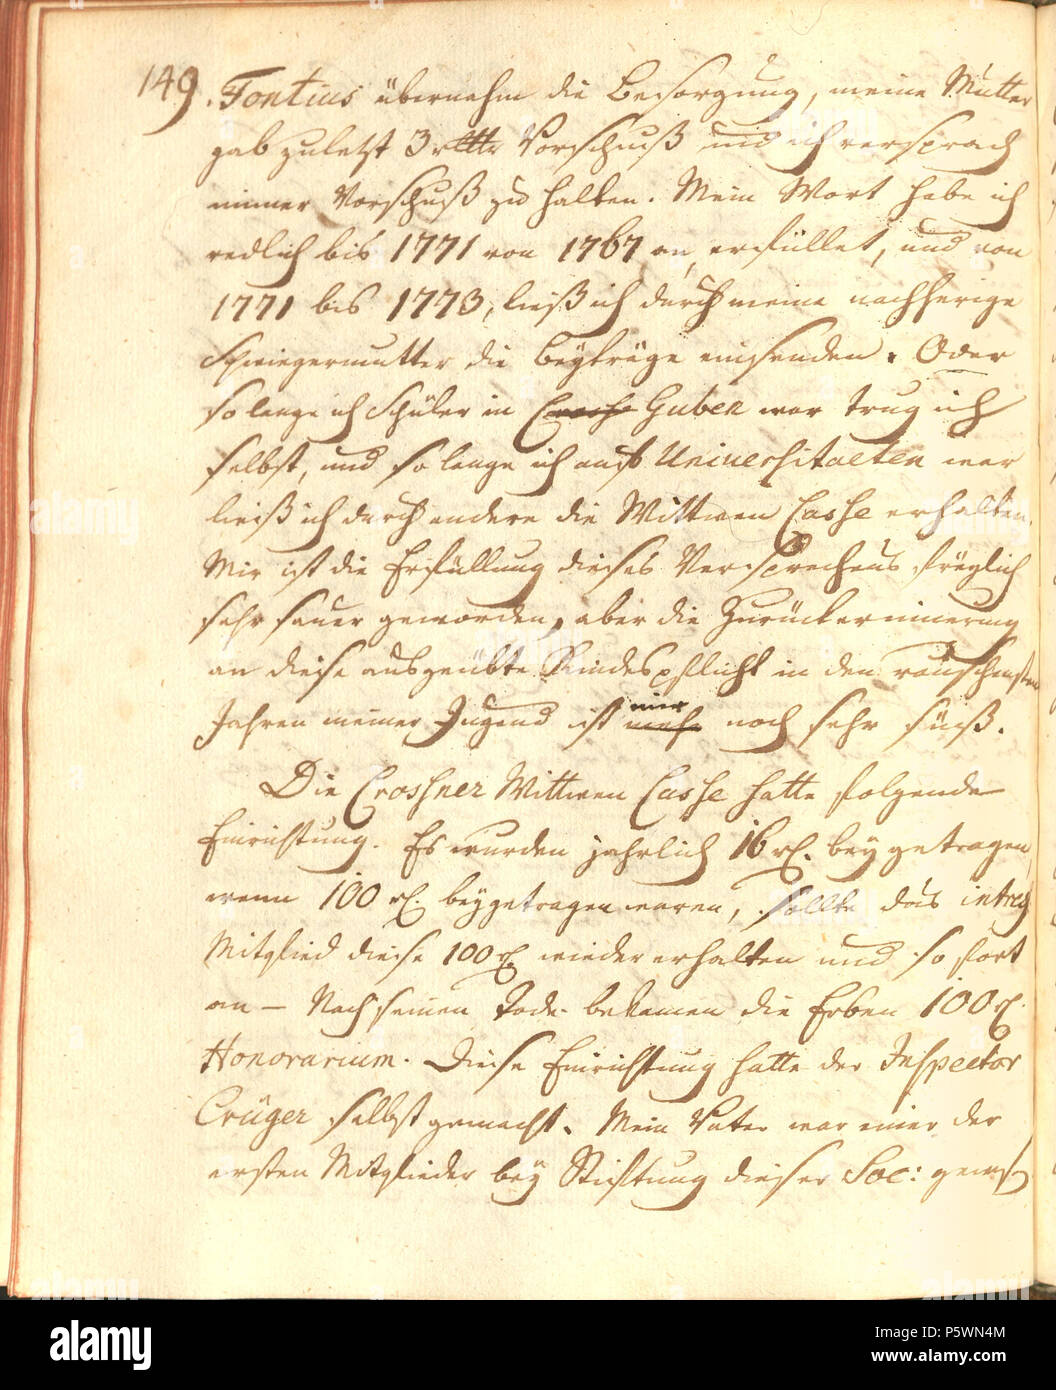 149. Fontius übernahm die Besorgung, meine Mutter
gab zuletzt 3 Vorschuß und ich versprach
immer Vorschuß zu halten. Mein Wort habe ich
redlich bis 1771 von 1767 an, erfüllet, und von
1771 bis 1773, ließ ich durch meine nachherige
Schwiegermutter die Beyträge einsenden. Oder
so lange ich Schüler in Crosse Guben war trug ich
selbst, und so lange ich auf Universitaeten war
ließ ich durch andere die Wittwen Casse erhalten.
Mir ist die Erfüllung dieses Versprechens freylich
sehr sauer geworden, aber die Zurückerinnerung
an diese ausgeübte Kindespflicht in den rauschensten
Jahren meiner Jugend ist mir noch sehr süß.
Die Crossner Wittwen Casse hatte folgende
Einrichtung. Es wurden jahrlich 16 rl. beygetragen,
wenn 100 rl. beygetragen waren, sollte das
Mitglied diese 100 rl. wieder erhalten und so fort
an - Nach seinem Tode bekamen die Erben 100 rl.
Honorarium. Diese Einrichtung hatte der Inspector
Crüger selbst gemacht. Mein Vater war einer der
ersten Mitglieder bey Stiftung dieser Soc:
alamy
Image ID: P5WN4M
www.alamy.com